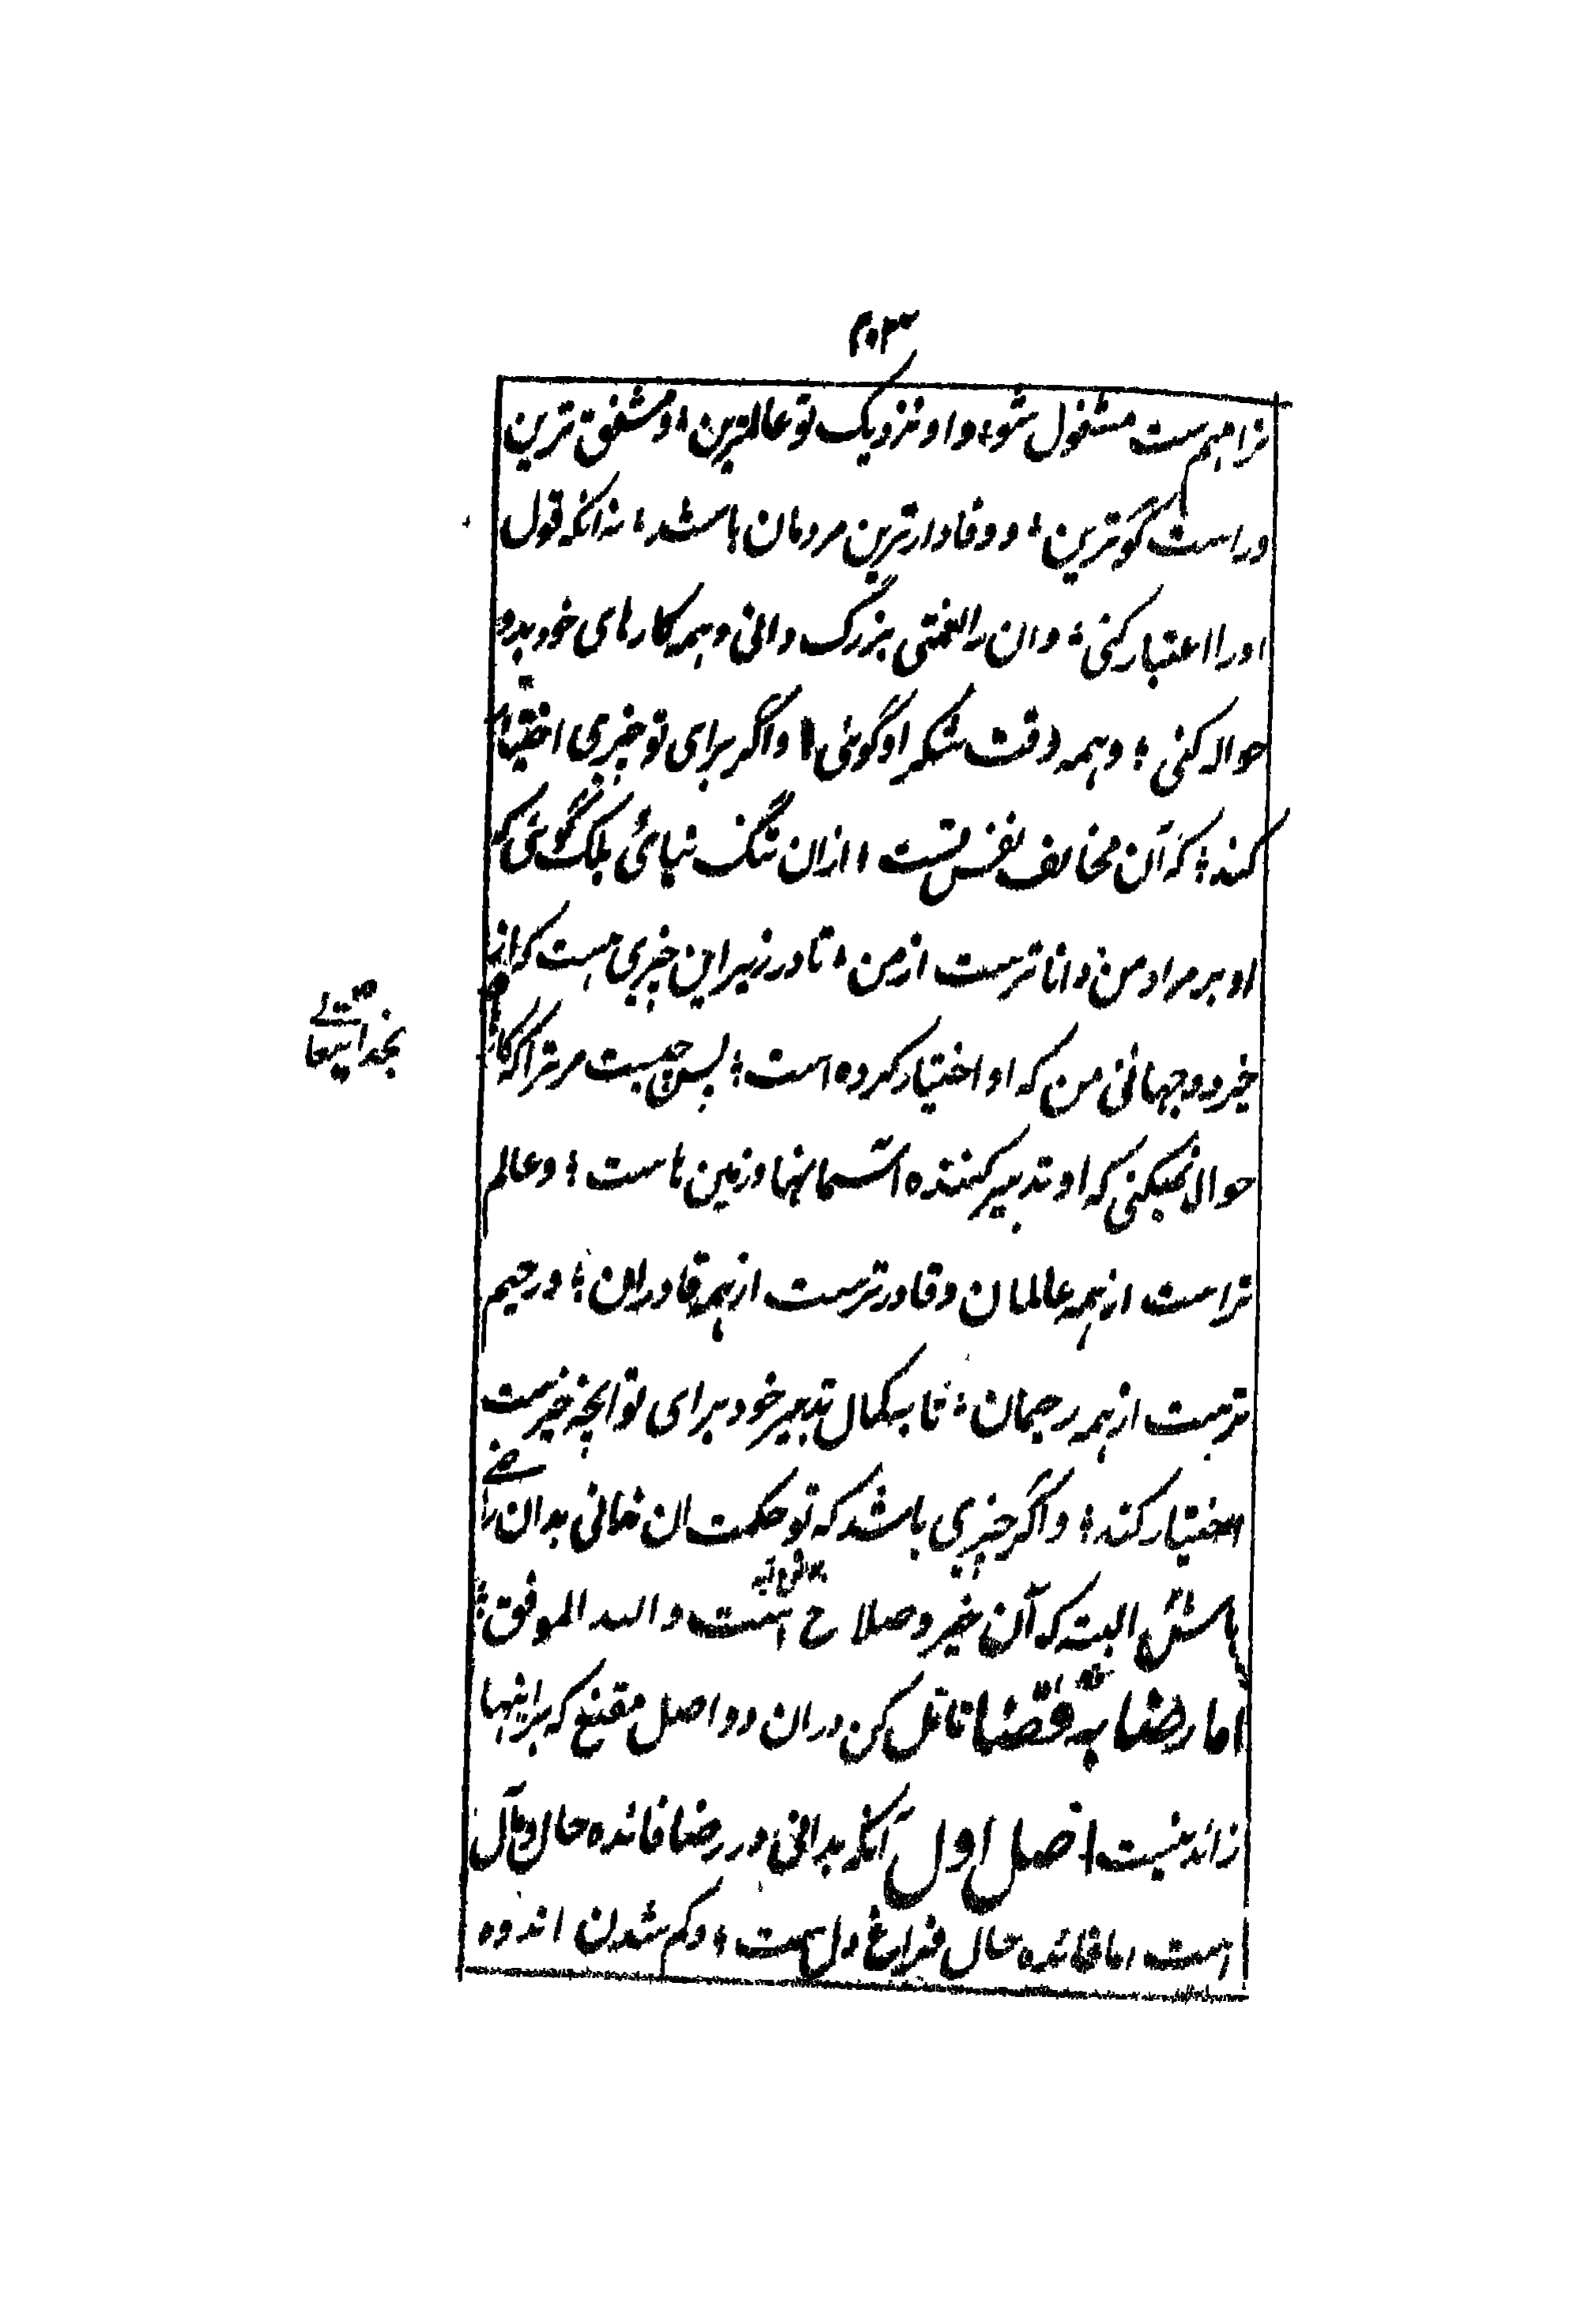 ۲۰۳
ترا مهم ست مشغول شو؛ و او نزدیک تو عالمترین؛ و مشفق ترین
وراست گوترین؛ و وفادارترین مردمان باشد؛ نه انکه قول
اورا اعتبار کنی؛ و ان را نعمتی بزرگ دانی و همه کارهای خود بدو
حواله کنی؛ و همه وقت شکر او گوئی؛ واگر برای تو چیزی اختیار
کند؛ که آن مخالف نفس تست؛ ازان تنگ نیائی بلکه گوئی که
او بر مراد من دانا ترست از من؛ تا در زیر این چیزی هست که از
خیر دو جهانی من که او اختیار کرده است؛ پس چیست مر ترا که کار
بخدایتعالے
حواله نمیکنی که او تدبیر کننده آسمانها و زمین هاست؛ و عالم
تراست از همه عالمان و قادرترست از همه قادران؛ و رحیم
ترست از همه رحیمان؛ تا به کمال تدبیر خود برای تو آنچه خیرست
اختیار کند؛ واگر چیزی باشد که تو حکمت ان ندانی بدان راضے
باش البته که آن خیر و صلاح است والله الموفق؛
اما رضا به قضا تامل کن دران دو اصل مقنع که بر اینها
زائد نیست اصل اول آنکه بدانی در رضا فائده حال و مآل
است اما فائده حال فراغ دل ست؛ و کم شدن اندوه